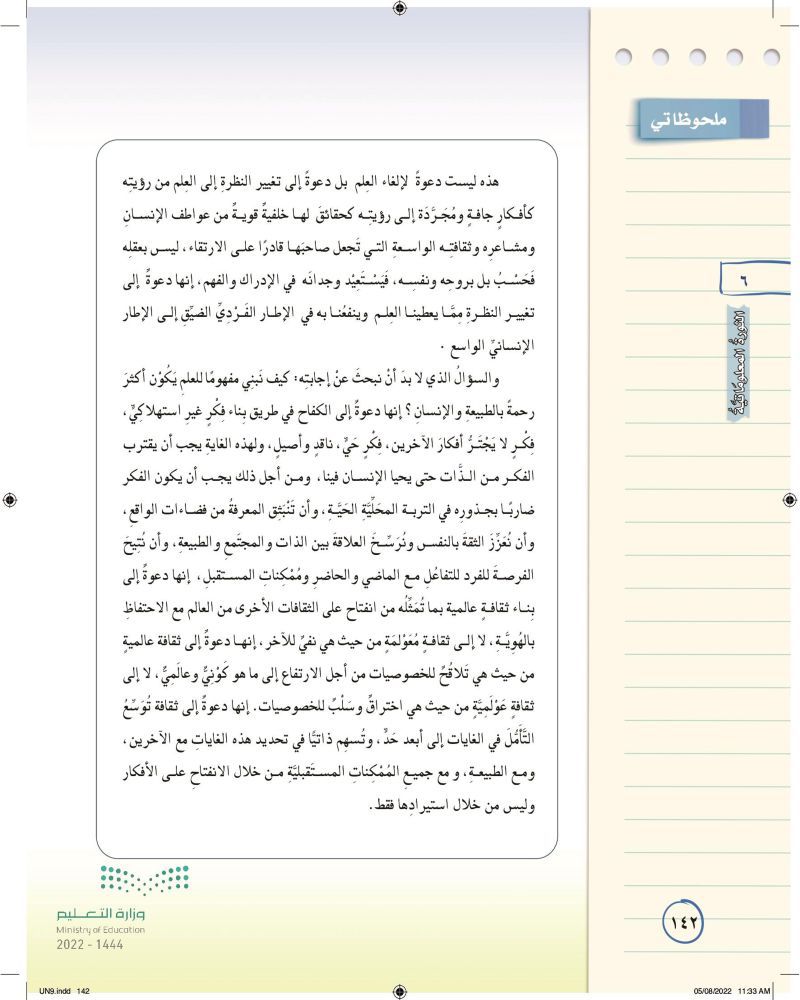 ملحوظاتي
٦
الثورةُ المعلوماتيَّةُ
هذه ليست دعوةً لإلغاء العِلم بل دعوةً إلى تغيير النظرةِ إلى العِلم من رؤيتِه
كأفكارٍ جافةٍ ومُجَرَّدَة إلى رؤيتِه كحقائقَ لها خلفيةٌ قويةٌ من عواطف الإنسانِ
ومشاعرِه وثقافتِه الواسعةِ التي تَجعل صاحبَها قادرًا على الارتقاء، ليس بعقلِه
فَحَسْبُ بل بروحِه ونفسِه، فَيَسْتَعِيْد وجدانَه في الإدراك والفهم، إنها دعوةٌ إلى
تغيير النظرةِ مِمَّا يعطينا العِلم وينفعُنا به في الإطار الفَرْدِيِّ الضيِّق إلى الإطار
الإنسانيِّ الواسع .
والسؤالُ الذي لا بدَ أنْ نبحثَ عنْ إجابتِه: كيف نَبنِي مفهومًا للعلمِ يَكُوْن أكثرَ
رحمةً بالطبيعةِ والإنسانِ؟ إنها دعوةٌ إلى الكفاح في طريق بِناء فِكْرٍ غيرِ استهلاكِيٍّ،
فِكْرٍ لا يَجْتَرُّ أفكارَ الآخرين، فِكْرٍ حَيٍّ، ناقدٍ وأصيلٍ، ولهذه الغايةِ يجب أن يقتربَ
الفكر من الذَّات حتى يحيا الإنسان فينا، ومن أجل ذلك يجب أن يكون الفكر
ضاربًا بجذورِه في التربة المحَلِّيَّةِ الحَيَّةِ، وأن تَنْبَثِق المعرفةُ من فضاءات الواقع،
وأن نُعَزِّزَ الثقةَ بالنفس ونُرَسِّخَ العلاقةَ بين الذات والمجتَمعِ والطبيعةِ، وأن نُتِيحَ
الفرصةَ للفرد للتفاعُلِ مع الماضي والحاضرِ ومُمْكِناتِ المستقبلِ، إنها دعوةٌ إلى
بِناء ثقافةٍ عالمية بما تُمَثِّلُه من انفتاح على الثقافات الأخرى من العالم مع الاحتفاظِ
بالهُويَّةِ، لا إلى ثقافةٍ مُعَوْلمَةٍ من حيث هي نفيٌ للآخر، إنها دعوةٌ إلى ثقافة عالميةٍ
من حيث هي تَلاقُحٌ للخصوصيات من أجل الارتفاع إلى ما هو كَوْنِيٌّ وعالَمِيٌّ، لا إلى
ثقافةٍ عَوْلَمِيَّةٍ من حيث هي اختراقٌ وسَلْبٌ للخصوصيات. إنها دعوةٌ إلى ثقافة تُوَسِّعُ
التَّأَمُّلَ في الغايات إلى أبعد حَدٍّ، وتُسهِم ذاتيًّا في تحديد هذه الغاياتِ مع الآخرين،
ومع الطبيعةِ، ومع جميع المُمْكِناتِ المستَقبليَّةِ من خلال الانفتاحِ على الأفكارِ
وليس من خلال استيرادِها فقط.
وزارة التعليم
Ministry of Education
2022 - 1444
١٤٢
UN9.indd 142
05/08/2022 11:33 AM